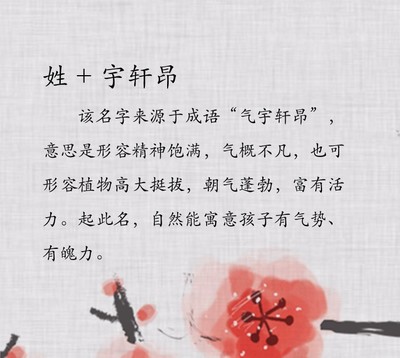 姓 + 宇轩昂
该名字来源于成语“气宇轩昂”，
意思是形容精神饱满，气概不凡，也可
形容植物高大挺拔，朝气蓬勃，富有活
力。起此名，自然能寓意孩子有气势、
有魄力。